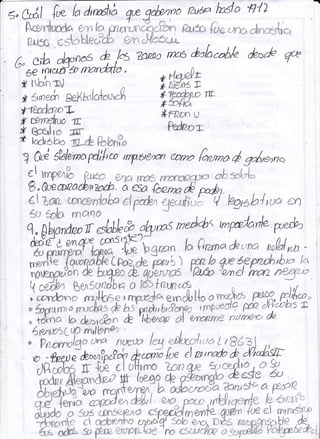 5. Cuál fue la dinastía que gobernó Rusa hasta 1917
Acentuada en la pronunciación Rusa fue una dinastía
Rusa establecido en Moscú
6. cita algunos de los zares mas destacable desde que
se inicia su mandato.
* Iván IV
* Simeón Bekbolatovich
* Teodoro I
* Demetrio II
* Basilio IV
* ladislao IV de Polonia
* Miguel I
* Alexis I
* Teodoro III
* Sofia
* Iván V
Pedro I
7 Qué sistema político impusieron como forma de gobierno
el imperio Ruso era mas monarquia absoluto
8. Que caracterizada a esa forma de poder
El zar concentaba el poder ejecutivo y legislativo en
su sola mano
9. Alejandro II estableció algunas medidas importante puedes
decir en que consistie
su primera tarea fue logran la firma de una relativa-
mente favorable (Paz de paris) por lo que se prohibio la
navegación de buques de guerras Ruso en el mar negro
y ceden Besarabia a
* condono multas e impuesta a muchos preso político
* Suprimio muchas de las prohibiciones impuesta por Nicolas I
* tomo la decisión de liberar al enorme numero de
siervos (40 millones)
* Promolgo una nueva ley educativa (1863)
10 - Breve descripción de como fue el reinado de Nicolas II
Nicolas II fue el ultimo zar que sucedio, a su
padre Alejandro III luego de
objetivo era mantener la autocracia zarista a pesar
que tenia caracter debil era poco inteligente le
ayudo a sus consejero especialmente quien fue el ministro
durante el gobierno solo era Dios responsable de
sus actos su peor error fue no escuchar a supueblo